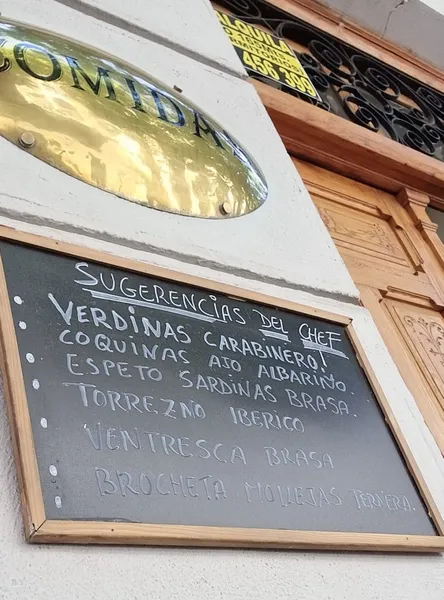 COMIDA
ALQUILA
456 399
SUGERENCIAS DEL CHEF
VERDINAS CARABINERO!
COQUINAS AJO ALBARIÑO.
ESPETO SARDINAS BRASA.
TORREZNO IBERICO
VENTRESCA BRASA
BROCHETA MOLLEJAS TERNERA.